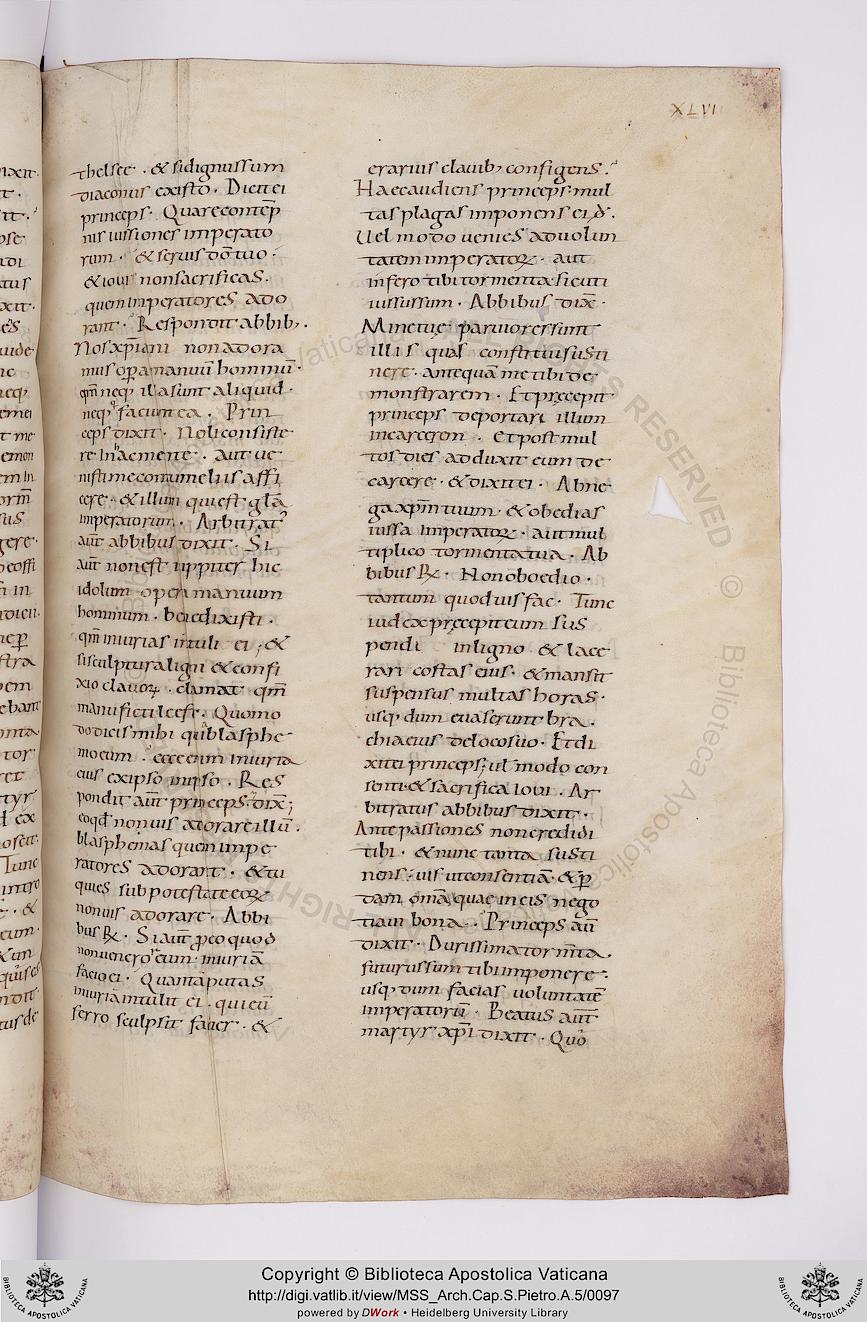 XLVI
thelsee . & si dignus sum
diaconus existo . Dicit ei
princeps . Quare contēp
nis iussiones imperato
rum . & seruus dō tuo .
& ioui non sacrificas .
quem imperatores ado
rant . Respondit abbib; .
Nos xp̄iani non adora
mus opa manuū hominū .
qm̄ neq; illa sunt aliquid .
neq; facium ea . Prin
ceps dixit . Noli consiste
re In hac mente . Aut ue
nisti me contumeliis affi
cere . & illum qui est gl̄a
imperatorum . Arbitrat'
aut̄ abbibus dixit . Si
aut̄ non est iuppiter hic
idolum opera manuum
hominum . benedixisti .
qm̄ iniurias intuli ei ; &
si sculptura ligni & confi
xio clauorꝝ . clamat qm̄
manu fictile est . Quomo
do dicis mihi quia blasphe
mo eum . ecce enim iniuria
eius ex ipso in ipso . Res
pondit aut̄ princeps . dix̄ ;
eo qd̄ non uis adorare illū .
blasphemas quem impe
ratores adorant . & tu
qui es sub potestate eorꝝ
non uis adorare . Abbi
bus ℞ . Si aut̄ p eo quod
non ueneror eum . iniuriā
facio ei . Quanta putas
iniuriā intulit ei . qui eū
ferro sculpsit faber . &
erarius clauib; configens .
Haec audiens princeps . mul
tas plagas imponens ei . d̄ .
Uel modo uenies ad uolun
tatem imperatorꝝ . aut
infero tibi tormenta sicuti
iussus sum . Abbibus dix̄ .
Minae tuae paruiores sunt
illis quas constitui susti
nere . antequā me tibi de
monstrarem . Et praecepit
princeps deportari illum
in carcerem . Et post mul
tos dies adduxit eum de
carcere . & dixit ei . Abne
ga xp̄m tuum . & obedias
iussa imperatorꝝ . aut mul
tiplico tormenta tua . Ab
bibus ℞ . Non oboedio .
tantum quod uis fac . Tunc
iudex praecepit eum sus
pendi in ligno & lace
rari costas eius . & mansit
suspensus multas horas .
usq; dum euaserunt bra .
chia eius de loco suo . Et di
xit ei princeps ; uel modo con
senti . & sacrifica ioui . Ar
bitratus abbibus dixit .
Ante passiones non credidi
tibi . & nunc tanta susti
nens . uis ut consentiā . & p
dam om̄a quae in eis nego
tiaui bona . Princeps aut̄
dixit . Durissima tormta .
futurus sum tibi imponere .
usq; dum facias uoluntatē
imperatorū . Beatus aut̄
martyr xp̄i dixit . Quō
Copyright © Biblioteca Apostolica Vaticana
http://digi.vatlib.it/view/MSS_Arch.Cap.S.Pietro.A.5/0097
powered by DWork • Heidelberg University Library